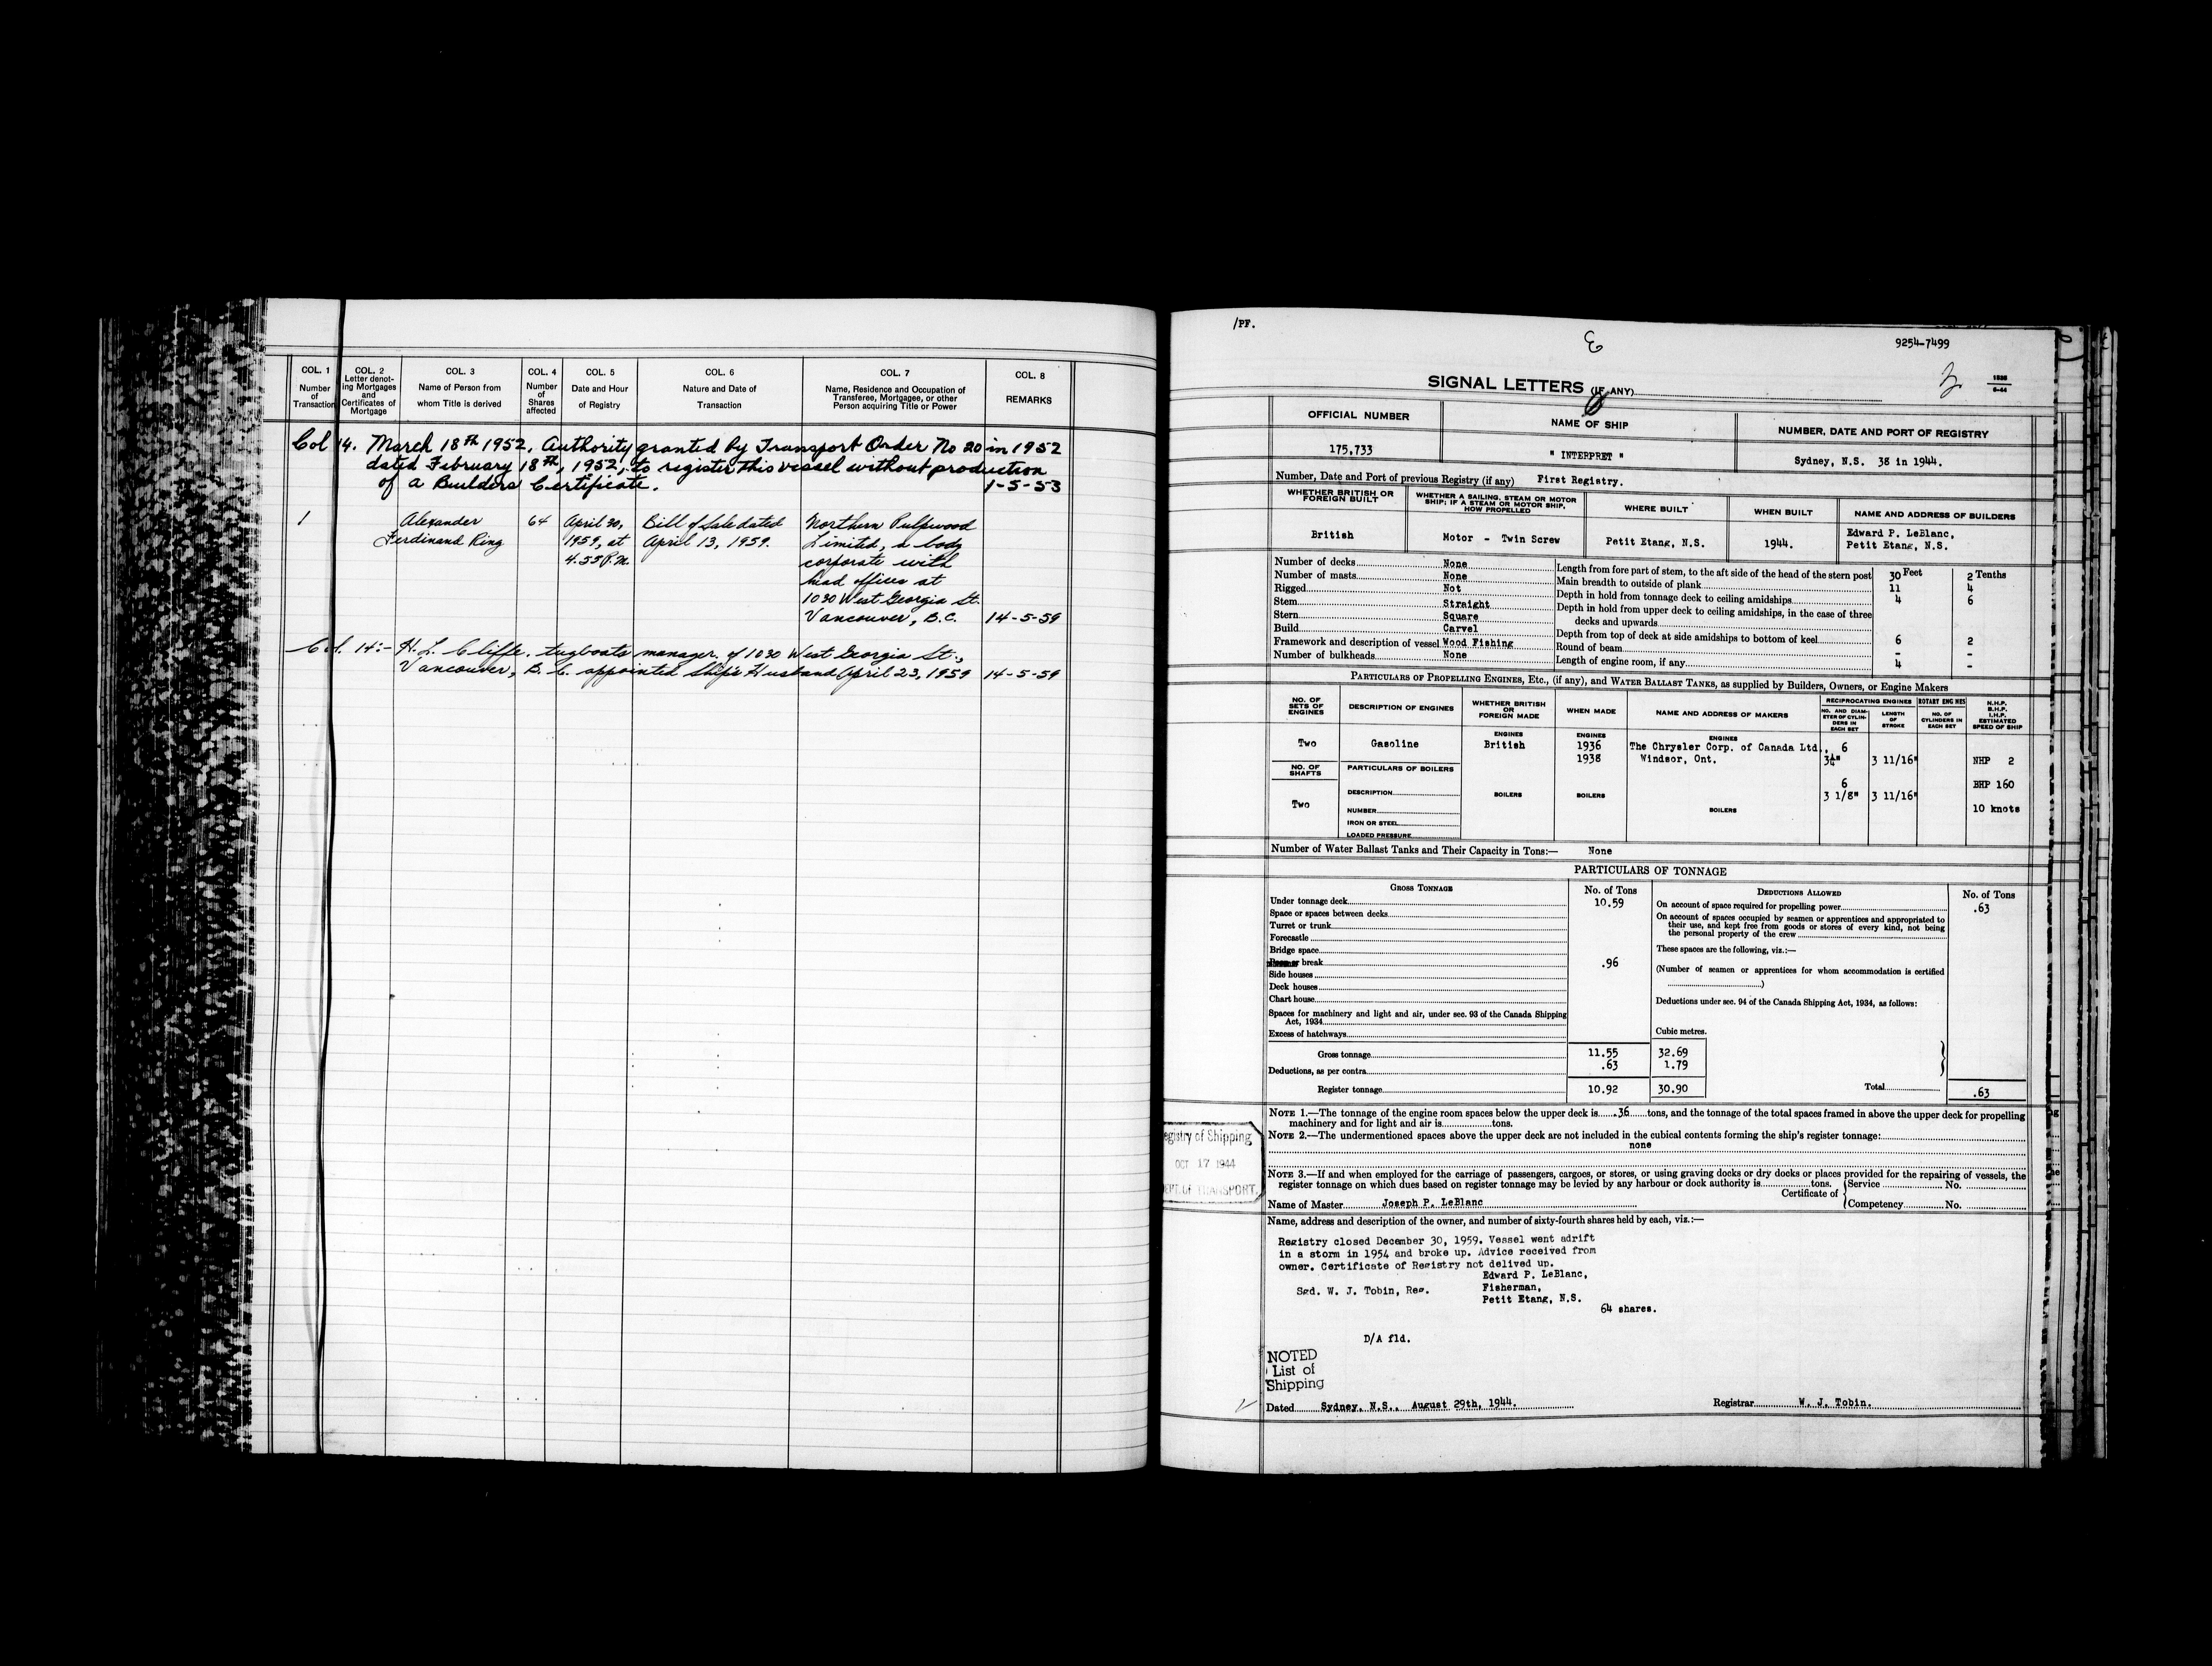 COL. 1
Number
of
Transaction
COL. 2
Letter denot-
ing Mortgages
and
Certificates of
Mortgage
COL. 3
Name of Person from
whom Title is derived
COL. 4
Number
of
Shares
affected
COL. 5
Date and Hour
of Registry
COL. 6
Nature and Date of
Transaction
COL. 7
Name, Residence and Occupation of
Transferee, Mortgagee, or other
Person acquiring Title or Power
COL. 8
REMARKS
Col 14. March 18th 1952, Authority granted by Transport Order No 20 in 1952
dated February 18th, 1952, to register this vessel without production
of a Builders Certificate. 1-5-53
1 Alexander 64 April 30, Bill of Sale dated Northern Pulpwood
Ferdinand Ring 1959, at April 13, 1959. Limited, a body
4.55 P.M. corporate with
head offices at
1030 West Georgia St.
Vancouver, B.C. 14-5-59
Col. 14:- H. L. Cliffe, tugboats manager, of 1030 West Georgia St.,
Vancouver, B.C. appointed Ship's Husband April 23, 1959 14-5-59
/PF.
9254-7499
SIGNAL LETTERS (IF ANY)
1938
6-44
OFFICIAL NUMBER
NAME OF SHIP
NUMBER, DATE AND PORT OF REGISTRY
175,733
" INTERPRET "
Sydney, N.S. 38 in 1944.
Number, Date and Port of previous Registry (if any) First Registry.
WHETHER BRITISH OR
FOREIGN BUILT
WHETHER A SAILING, STEAM OR MOTOR
SHIP; IF A STEAM OR MOTOR SHIP,
HOW PROPELLED
WHERE BUILT
WHEN BUILT
NAME AND ADDRESS OF BUILDERS
British
Motor - Twin Screw
Petit Etang, N.S.
1944.
Edward P. LeBlanc,
Petit Etang, N.S.
Number of decks None
Number of masts None
Rigged Not
Stem Straight
Stern Square
Build Carvel
Framework and description of vessel Wood Fishing
Number of bulkheads None
Length from fore part of stem, to the aft side of the head of the stern post 30 Feet 2 Tenths
Main breadth to outside of plank 11 4
Depth in hold from tonnage deck to ceiling amidships 4 6
Depth in hold from upper deck to ceiling amidships, in the case of three
decks and upwards
Depth from top of deck at side amidships to bottom of keel 6 2
Round of beam - -
Length of engine room, if any 4 -
PARTICULARS OF PROPELLING ENGINES, ETC., (if any), and WATER BALLAST TANKS, as supplied by Builders, Owners, or Engine Makers
NO. OF
SETS OF
ENGINES
DESCRIPTION OF ENGINES
WHETHER BRITISH
OR
FOREIGN MADE
WHEN MADE
NAME AND ADDRESS OF MAKERS
RECIPROCATING ENGINES
NO. AND DIAM-
ETER OF CYLIN-
DERS IN
EACH SET
LENGTH
OF
STROKE
ROTARY ENGINES
NO. OF
CYLINDERS IN
EACH SET
N.H.P.
B.H.P.
I.H.P.
ESTIMATED
SPEED OF SHIP
ENGINES ENGINES ENGINES
Two Gasoline British 1936 The Chrysler Corp. of Canada Ltd., 6
1938 Windsor, Ont. 3¼" 3 11/16" NHP 2
NO. OF
SHAFTS
PARTICULARS OF BOILERS
6 BHP 160
DESCRIPTION BOILERS BOILERS 3 1/8" 3 11/16"
Two NUMBER BOILERS 10 knots
IRON OR STEEL
LOADED PRESSURE
Number of Water Ballast Tanks and Their Capacity in Tons:— None
PARTICULARS OF TONNAGE
GROSS TONNAGE No. of Tons
Under tonnage deck 10.59
Space or spaces between decks
Turret or trunk
Forecastle
Bridge space
break .96
Side houses
Deck houses
Chart house
Spaces for machinery and light and air, under sec. 93 of the Canada Shipping
Act, 1934
Excess of hatchways
Cubic metres.
Gross tonnage 11.55 32.69
Deductions, as per contra .63 1.79
Register tonnage 10.92 30.90
DEDUCTIONS ALLOWED No. of Tons
On account of space required for propelling power .63
On account of spaces occupied by seamen or apprentices and appropriated to
their use, and kept free from goods or stores of every kind, not being
the personal property of the crew
These spaces are the following, viz.:—
(Number of seamen or apprentices for whom accommodation is certified
)
Deductions under sec. 94 of the Canada Shipping Act, 1934, as follows:
Total .63
NOTE 1.—The tonnage of the engine room spaces below the upper deck is .36 tons, and the tonnage of the total spaces framed in above the upper deck for propelling
machinery and for light and air is tons.
NOTE 2.—The undermentioned spaces above the upper deck are not included in the cubical contents forming the ship's register tonnage:
none
NOTE 3.—If and when employed for the carriage of passengers, cargoes, or stores, or using graving docks or dry docks or places provided for the repairing of vessels, the
register tonnage on which dues based on register tonnage may be levied by any harbour or dock authority is tons.
Certificate of Service No.
Competency No.
Name of Master Joseph P. LeBlanc
egistry of Shipping
OCT 17 1944
EPT. OF TRANSPORT.
Name, address and description of the owner, and number of sixty-fourth shares held by each, viz.:—
Registry closed December 30, 1959. Vessel went adrift
in a storm in 1954 and broke up. Advice received from
owner. Certificate of Registry not delived up.
Edward P. LeBlanc,
Sgd. W. J. Tobin, Reg. Fisherman,
Petit Etang, N.S.
64 shares.
D/A fld.
NOTED
List of
Shipping
Dated Sydney, N.S., August 29th, 1944. Registrar W. J. Tobin.